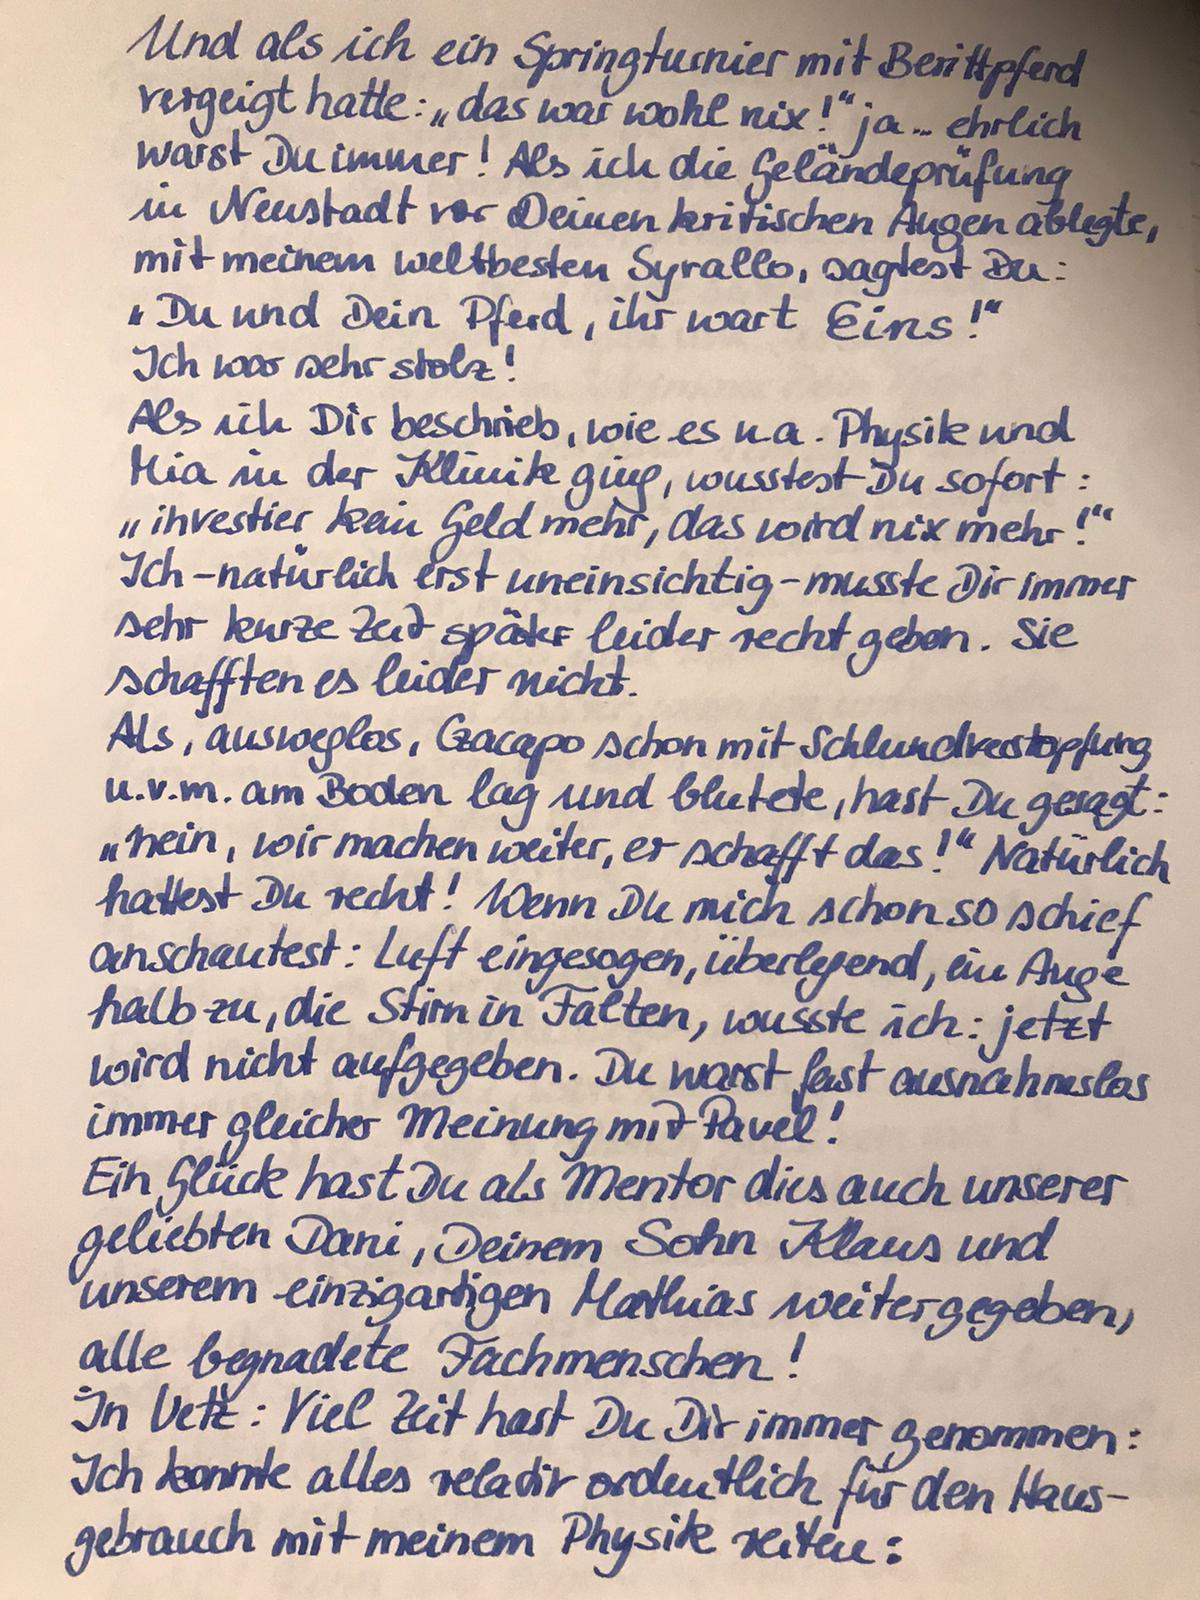 Und als ich ein Springturnier mit Berittpferd
vergeigt hatte: „das war wohl nix!“ ja... ehrlich
warst Du immer! Als ich die Geländeprüfung
in Neustadt vor Deinen kritischen Augen ablegte,
mit meinem weltbesten Syrallo, sagtest Du:
„Du und Dein Pferd, ihr wart Eins!“
Ich war sehr stolz!
Als ich Dir beschrieb, wie es u.a. Physik und
Mia in der Klinik ging, wusstest Du sofort:
„investier kein Geld mehr, das wird nix mehr!“
Ich - natürlich erst uneinsichtig - musste Dir immer
sehr kurze Zeit später leider recht geben. Sie
schafften es leider nicht.
Als, ausweglos, Czacapo schon mit Schlundverstopfung
u.v.m. am Boden lag und blutete, hast Du gesagt:
„nein, wir machen weiter, er schafft das!“ Natürlich
hattest Du recht! Wenn Du mich schon so schief
anschautest: Luft eingesogen, überlegend, ein Auge
halb zu, die Stirn in Falten, wusste ich: jetzt
wird nicht aufgegeben. Du warst fast ausnahmslos
immer gleicher Meinung mit Pavel!
Ein Glück hast Du als Mentor dies auch unserer
geliebten Dani, Deinem Sohn Klaus und
unserem einzigartigen Mathias weitergegeben,
alle begnadete Fachmenschen!
In Vetz: Viel Zeit hast Du Dir immer genommen:
Ich konnte alles relativ ordentlich für den Haus-
gebrauch mit meinem Physik reiten: